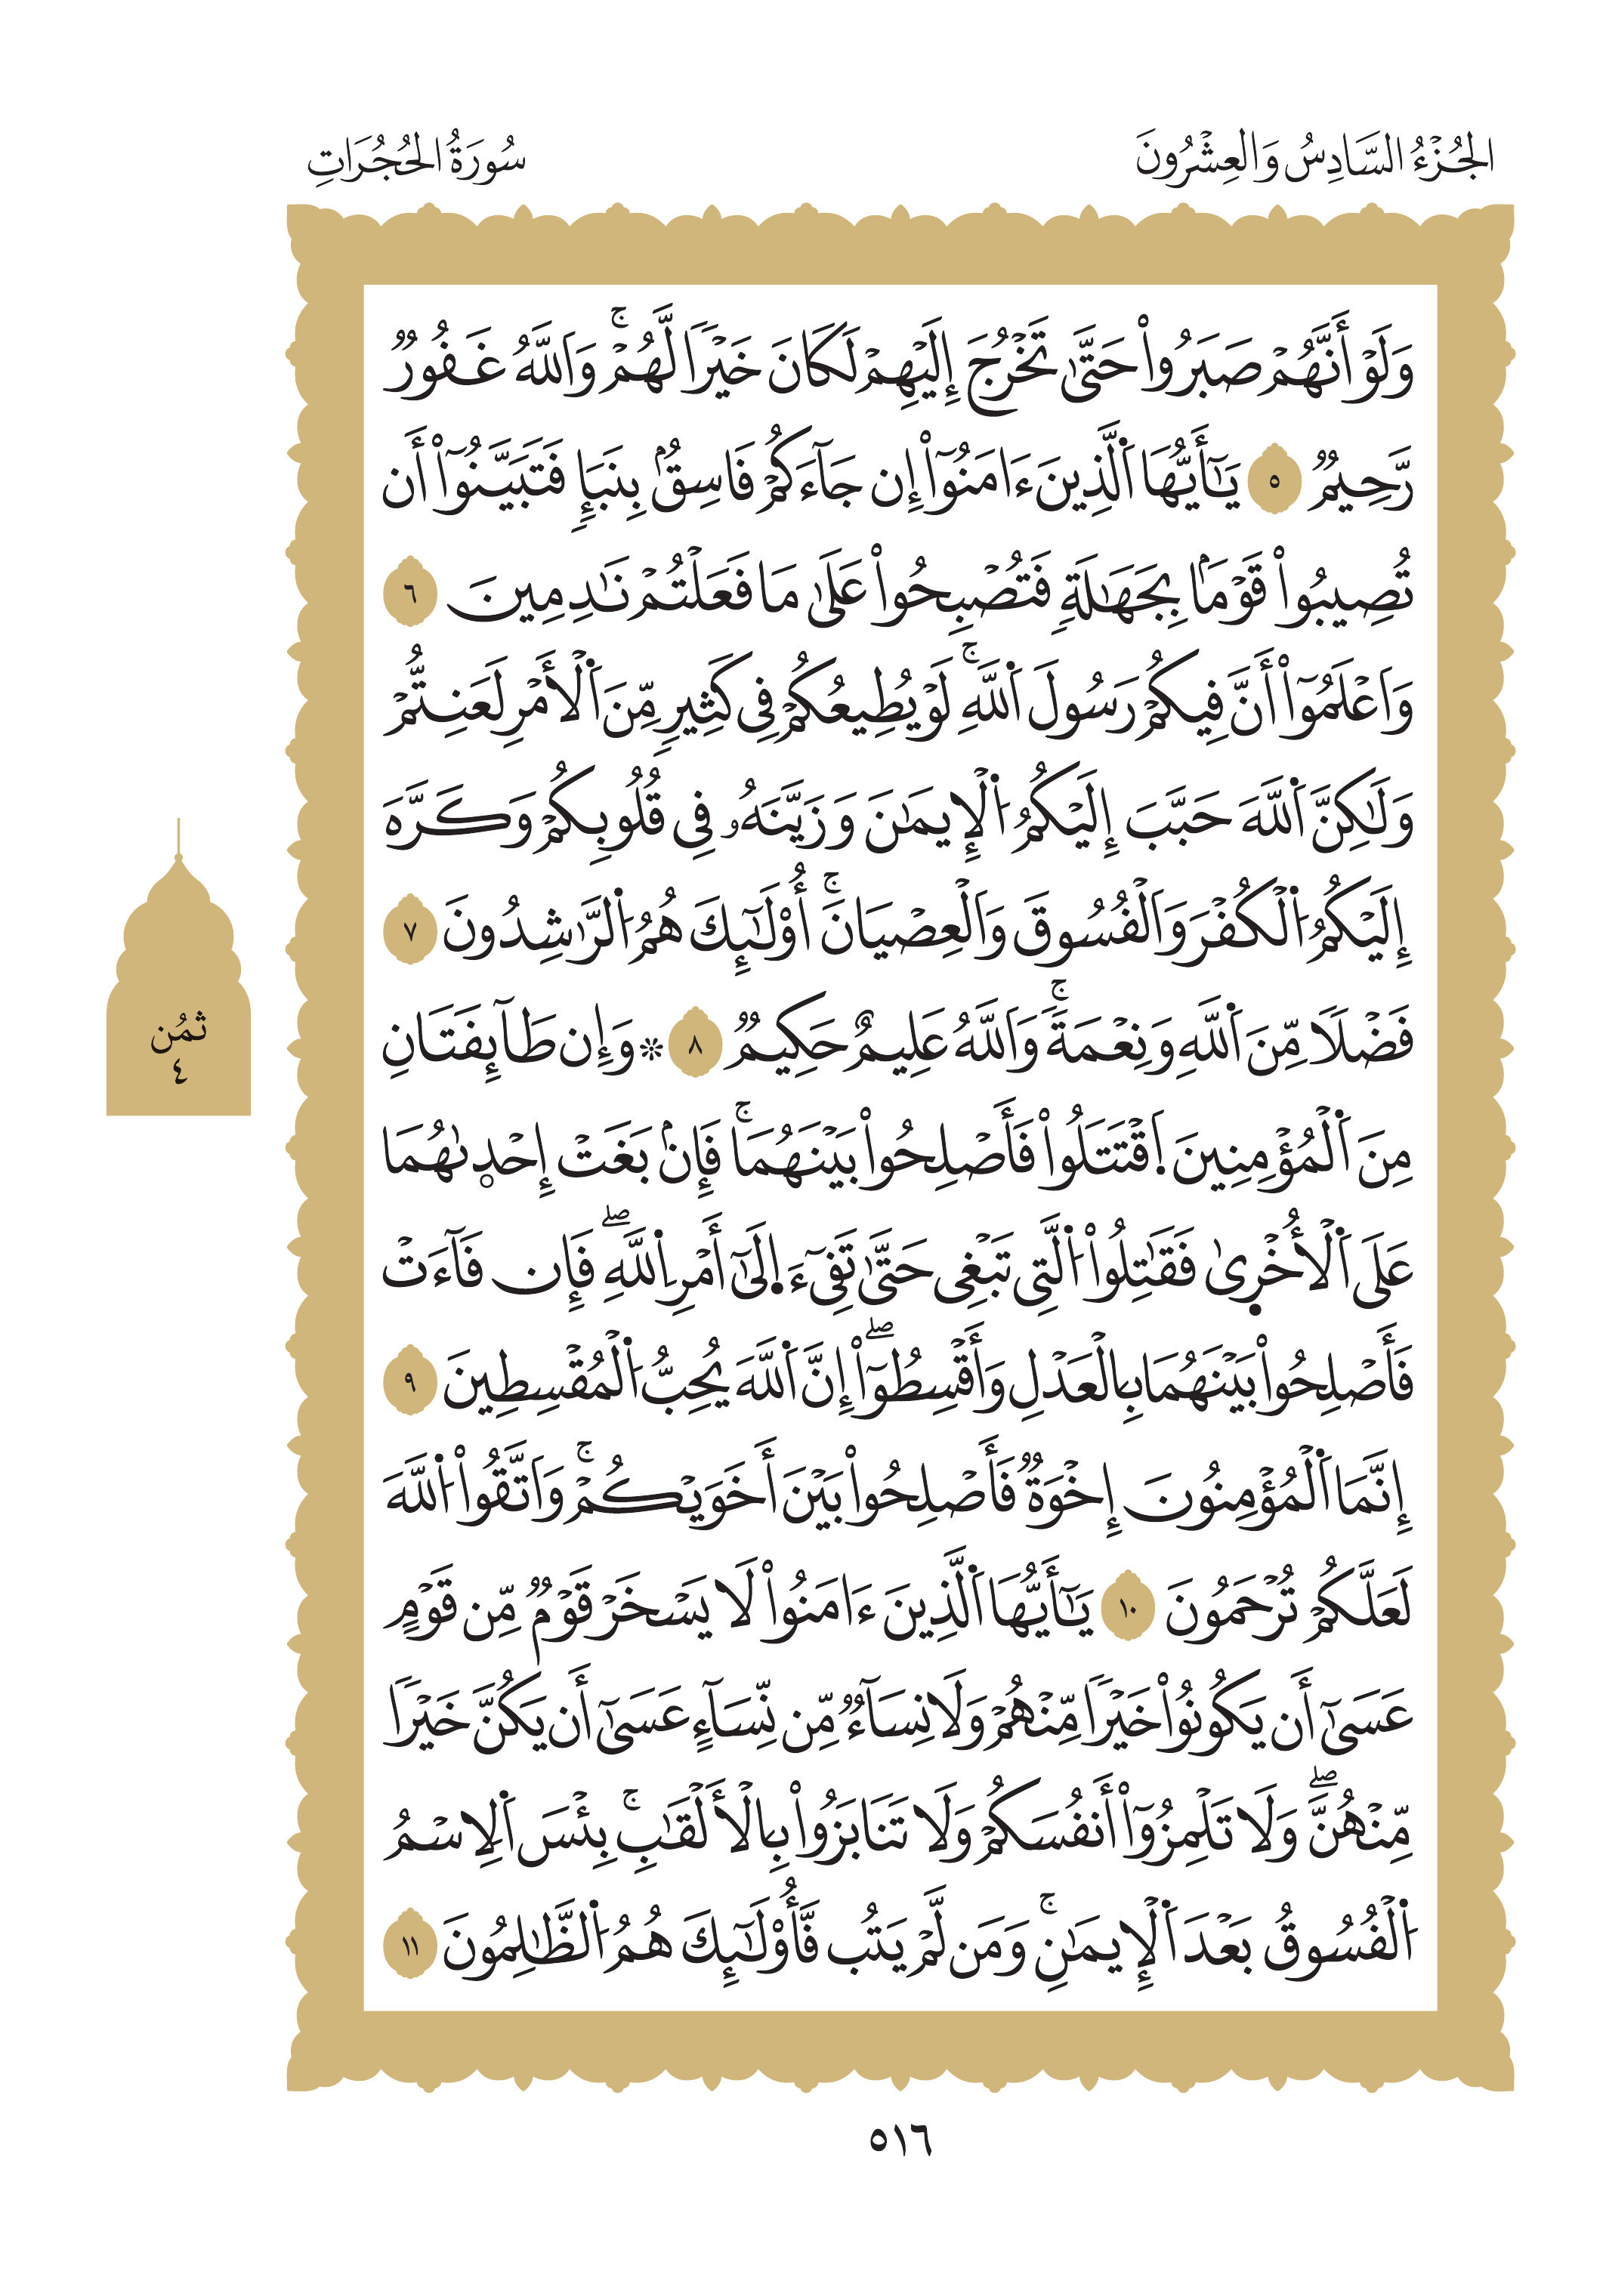 الجُزْءُ السَّادِسُ وَالعِشْرُونَ
سُورَةُ الحُجُرَاتِ
وَلَوْ أَنَّهُمْ صَبَرُواْ حَتَّىٰ تَخْرُجَ إِلَيْهِمْ لَكَانَ خَيْرًا لَّهُمْۚ وَاَللَّهُ غَفُورٌ
رَّحِيمٌ ٥ يَـٰٓأَيُّهَا اَلَّذِينَ ءَامَنُوٓاْ إِن جَآءَكُمْ فَاسِقُۢ بِنَبَإٍ فَتَبَيَّنُوٓاْ أَن
تُصِيبُواْ قَوْمَۢا بِجَهَـٰلَةٍ فَتُصْبِحُواْ عَلَىٰ مَا فَعَلْتُمْ نَـٰدِمِينَ ٦
وَاَعْلَمُوٓاْ أَنَّ فِيكُمْ رَسُولَ اَللَّهِۚ لَوْ يُطِيعُكُمْ فِى كَثِيرٍ مِّنَ اَلْأَمْرِ لَعَنِتُّمْ
وَلَـٰكِنَّ اَللَّهَ حَبَّبَ إِلَيْكُمُ اُلْإِيمَـٰنَ وَزَيَّنَهُۥ فِى قُلُوبِكُمْ وَكَرَّهَ
إِلَيْكُمُ اُلْكُفْرَ وَاَلْفُسُوقَ وَاَلْعِصْيَانَۚ أُوْلَـٰٓئِكَ هُمُ اُلرَّٰشِدُونَ ٧
فَضْلًا مِّنَ اَللَّهِ وَنِعْمَةًۚ وَاَللَّهُ عَلِيمٌ حَكِيمٌ ٨ ۞ وَإِن طَآئِفَتَانِ
مِنَ اَلْمُؤْمِنِينَ اَقْتَتَلُواْ فَأَصْلِحُواْ بَيْنَهُمَاۚ فَإِنۢ بَغَتْ إِحْدٜىٰهُمَا
عَلَى اَلْأُخْرٜىٰ فَقَـٰتِلُواْ اُلَّتِى تَبْغِى حَتَّىٰ تَفِىٓءَ اِلَىٰٓ أَمْرِ اِللَّهِۖ فَإِن فَآءَتْ
فَأَصْلِحُواْ بَيْنَهُمَا بِالْعَدْلِ وَأَقْسِطُوٓاْۖ إِنَّ اَللَّهَ يُحِبُّ اُلْمُقْسِطِينَ ٩
إِنَّمَا اَلْمُؤْمِنُونَ إِخْوَةٌ فَأَصْلِحُواْ بَيْنَ أَخَوَيْكُمْۚ وَاَتَّقُواْ اُللَّهَ
لَعَلَّكُمْ تُرْحَمُونَ ١٠ يَـٰٓأَيُّهَا اَلَّذِينَ ءَامَنُواْ لَا يَسْخَرْ قَوْمٌ مِّن قَوْمٍ
عَسَىٰٓ أَن يَكُونُواْ خَيْرًا مِّنْهُمْ وَلَا نِسَآءٌ مِّن نِّسَآءٍ عَسَىٰٓ أَن يَكُنَّ خَيْرًا
مِّنْهُنَّۖ وَلَا تَلْمِزُوٓاْ أَنفُسَكُمْ وَلَا تَنَابَزُواْ بِالْأَلْقَـٰبِۚ بِئْسَ اَلِاسْمُ
اُلْفُسُوقُ بَعْدَ اَلْإِيمَـٰنِۚ وَمَن لَّمْ يَتُب فَّأُوْلَـٰٓئِكَ هُمُ اُلظَّـٰلِمُونَ ١١
ثمُن
٤
٥١٦